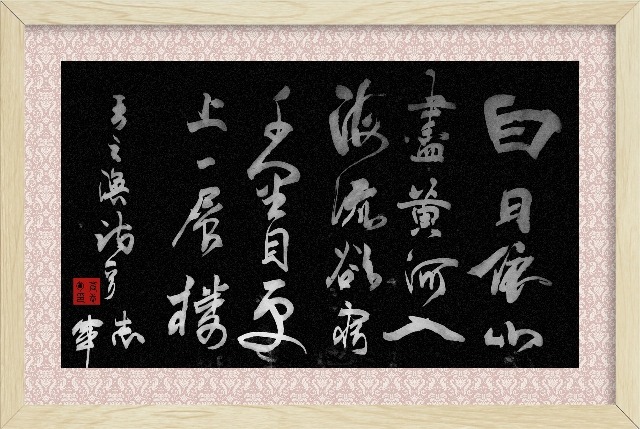 白日依山
盡黄河入
海流欲窮
千里目更
上一層樓
王之渙詩